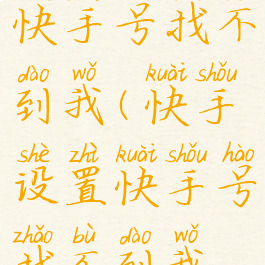 快手号找不
dào wǒ kuài shǒu
到我(快手
shè zhì kuài shǒu hào
设置快手号
zhǎo bù dào wǒ
找不到我